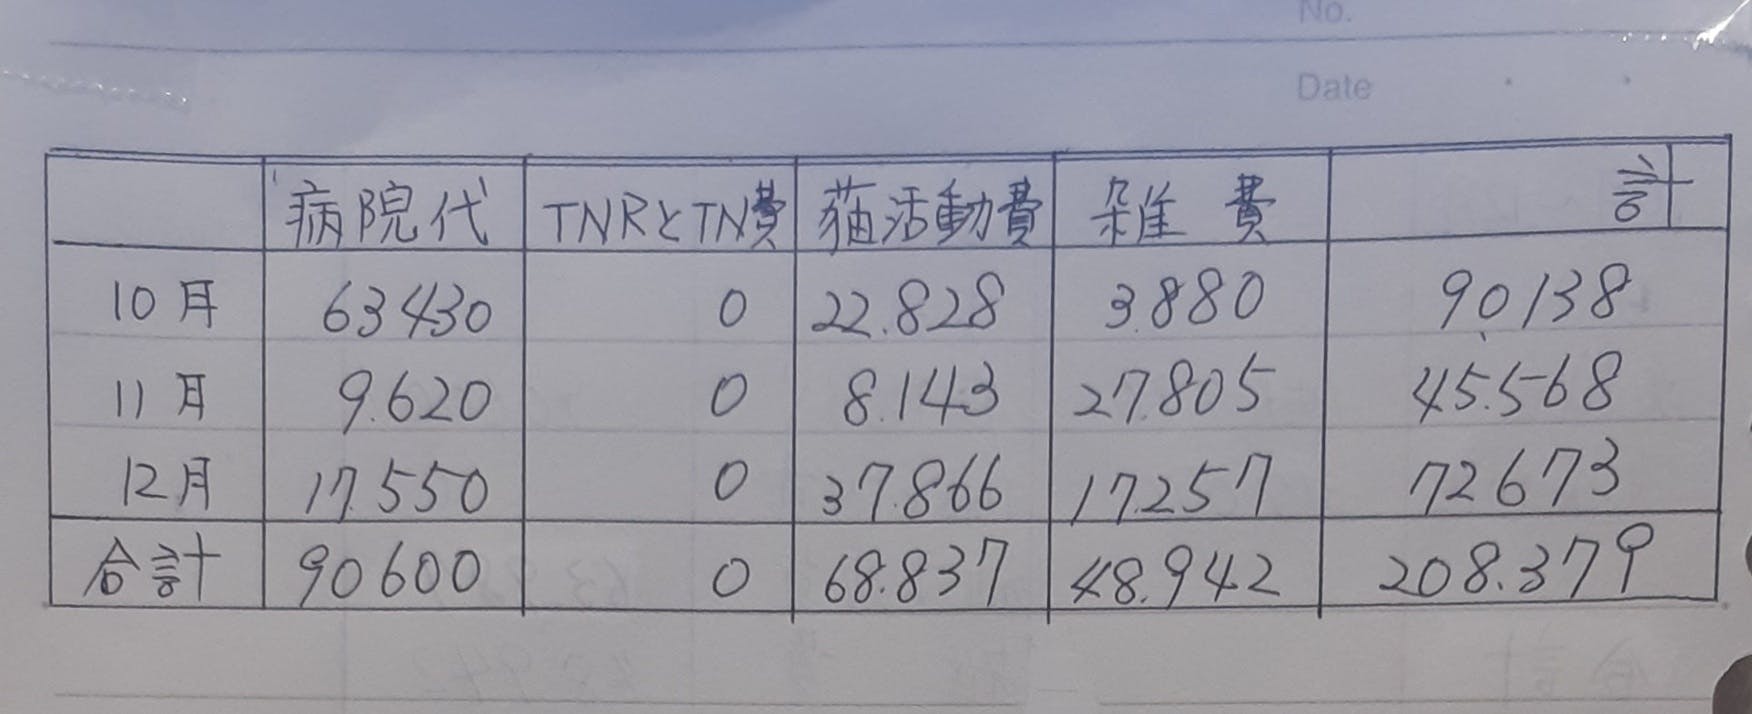 No.
Date
病院代 TNRとTN費 猫活動費 雑費 計
10月 63430 0 22.828 3.880 90138
11月 9.620 0 8.143 27.805 45.568
12月 17.550 0 37.866 17.257 72673
合計 90600 0 68.837 48.942 208.379